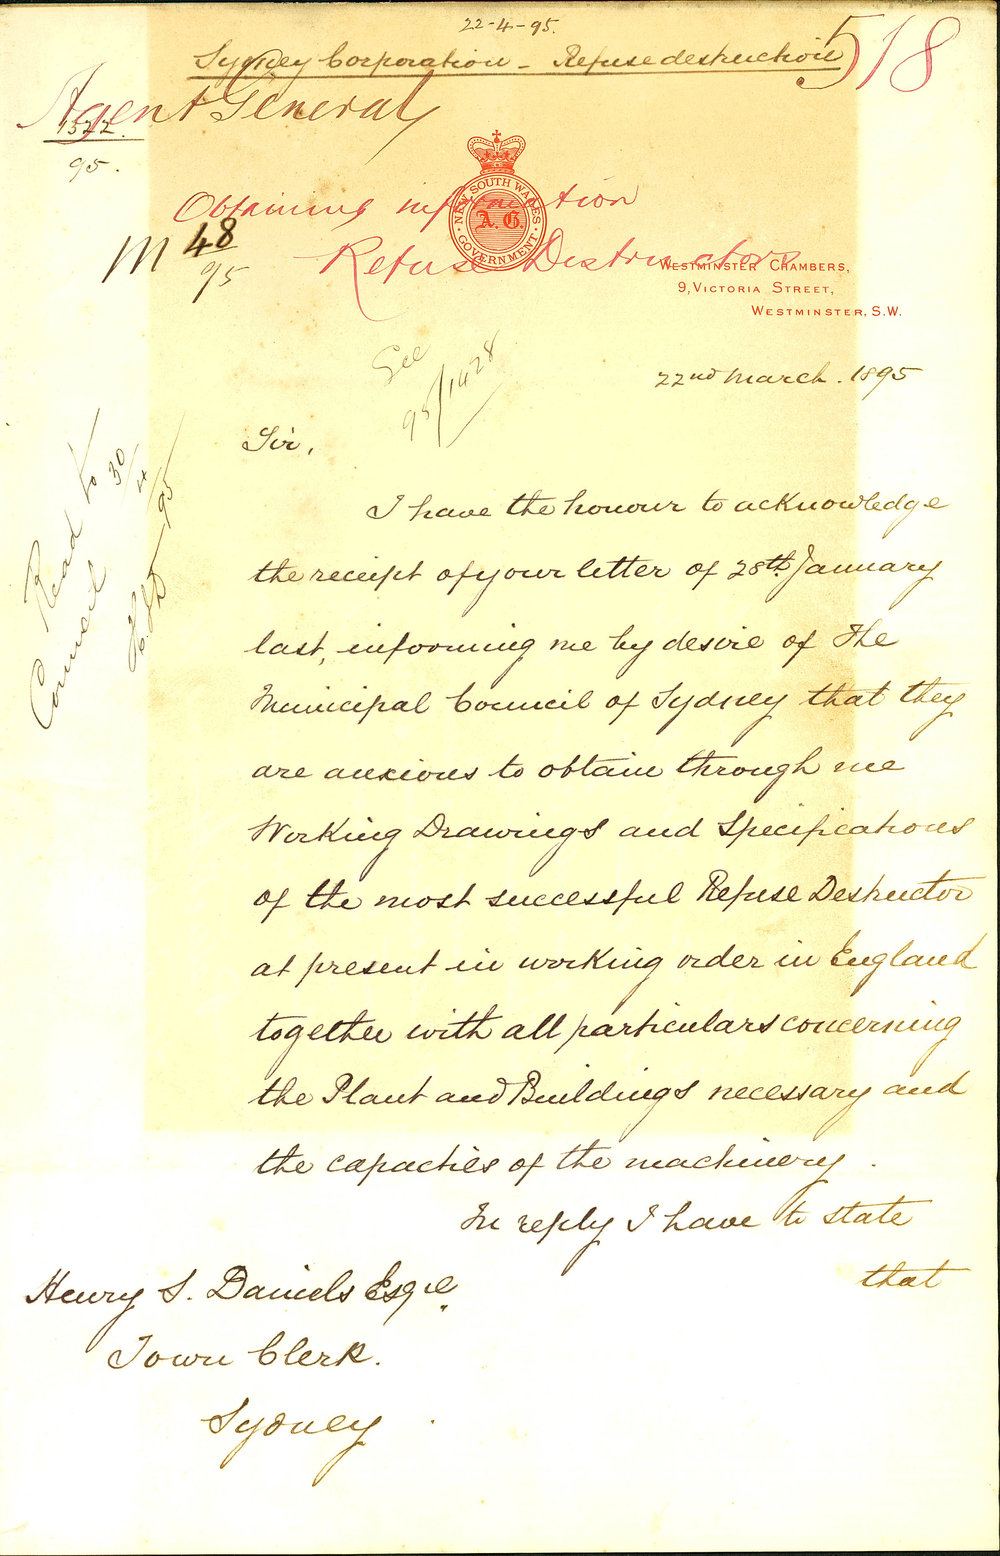 22-4-95.
Sydney Corporation - Refuse destruction
518
Agent General
1522.
95.
Obtaining information
NEW SOUTH WALES
A.G.
GOVERNMENT
M 48
95
Refuse Destructors
WESTMINSTER CHAMBERS,
9, VICTORIA STREET,
WESTMINSTER, S.W.
See
95/1428
22nd March. 1895
Read to
Council
30/4/95
Sir,
I have the honour to acknowledge
the receipt of your letter of 28th January
last, informing me by desire of The
Municipal Council of Sydney that they
are anxious to obtain through me
Working Drawings and Specifications
of the most successful Refuse Destructor
at present in working order in England
together with all particulars concerning
the Plant and Buildings necessary and
the capacities of the machinery.
In reply I have to state
that
Henry S. Daniels Esqre
Town Clerk.
Sydney